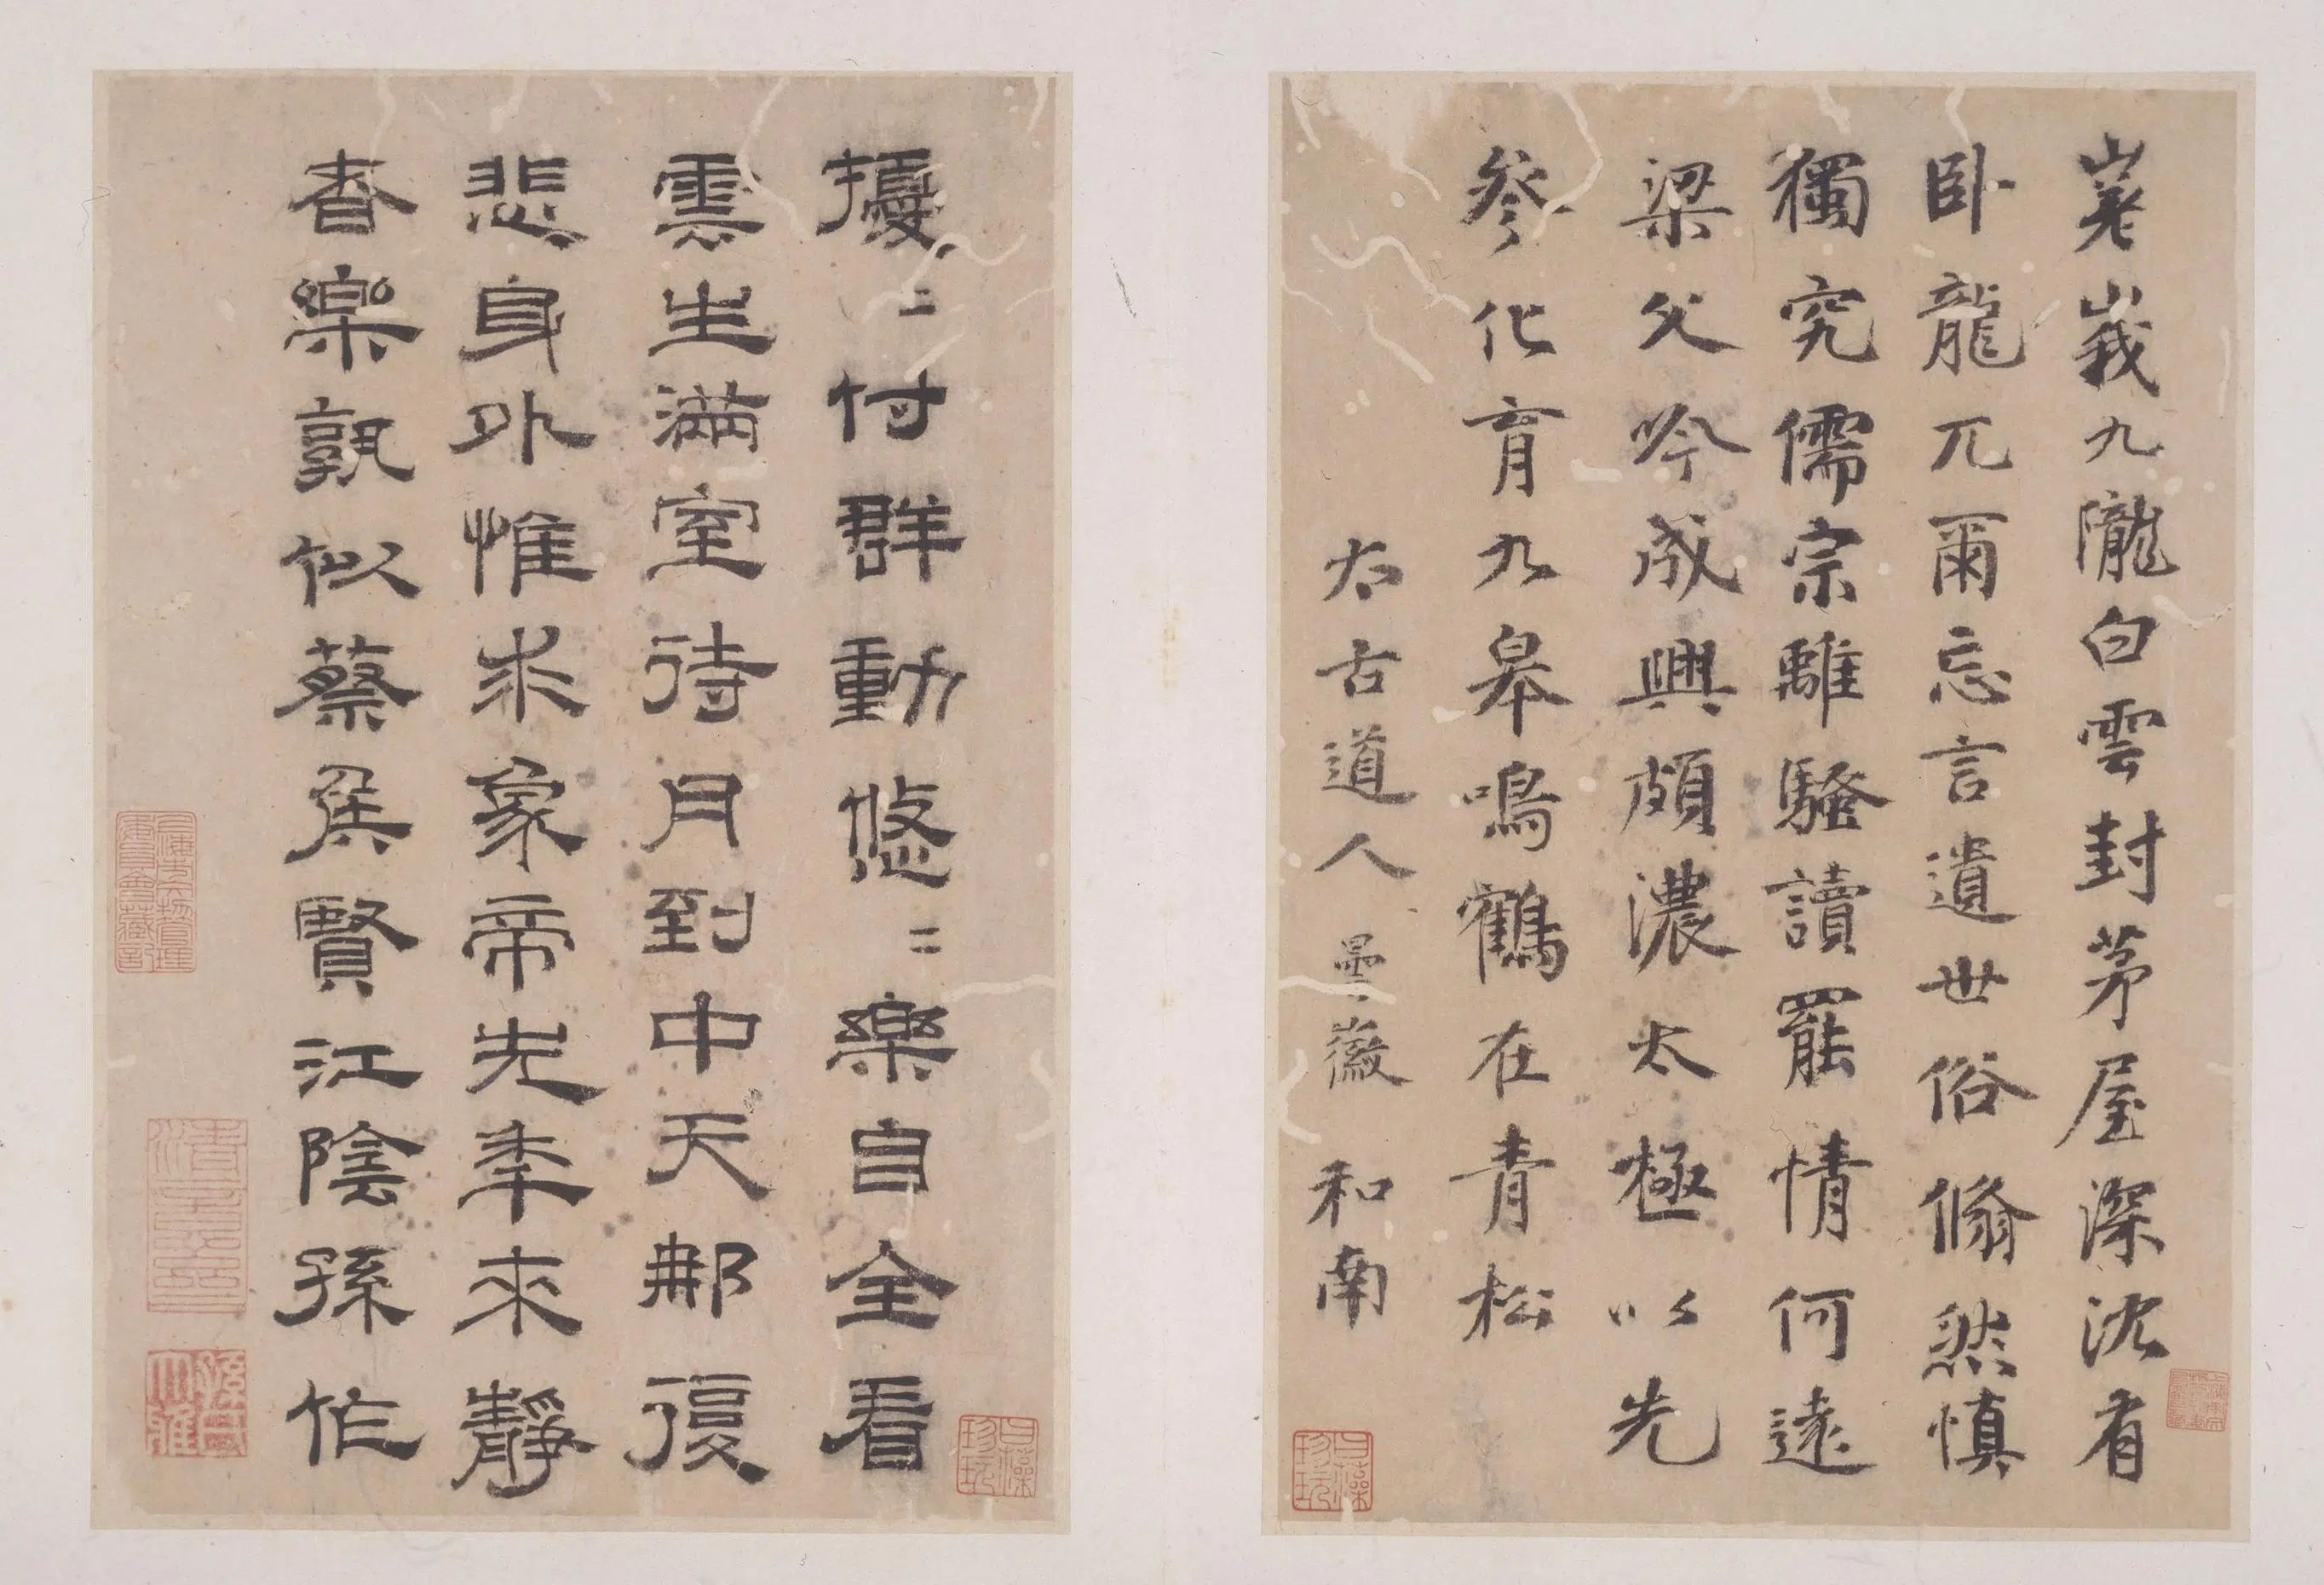 嵬峩九隴白雲封茅屋深沈有
卧龍兀爾忘言遺世俗翛然慎
獨究儒宗離騷讀罷情何遠
梁父吟成興頗濃太極以先
參化育九皋鳴鶴在青松
太古道人 曇徽 和南
擾〻付群動悠〻樂自全看
雲生滿室待月到中天那復
悲身外惟求象帝先年來靜
者樂孰似蔡矦賢江陰孫作